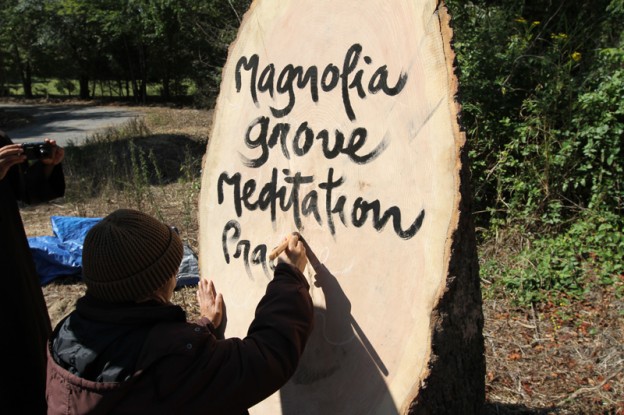 Magnolia
grove
Meditation
Pra